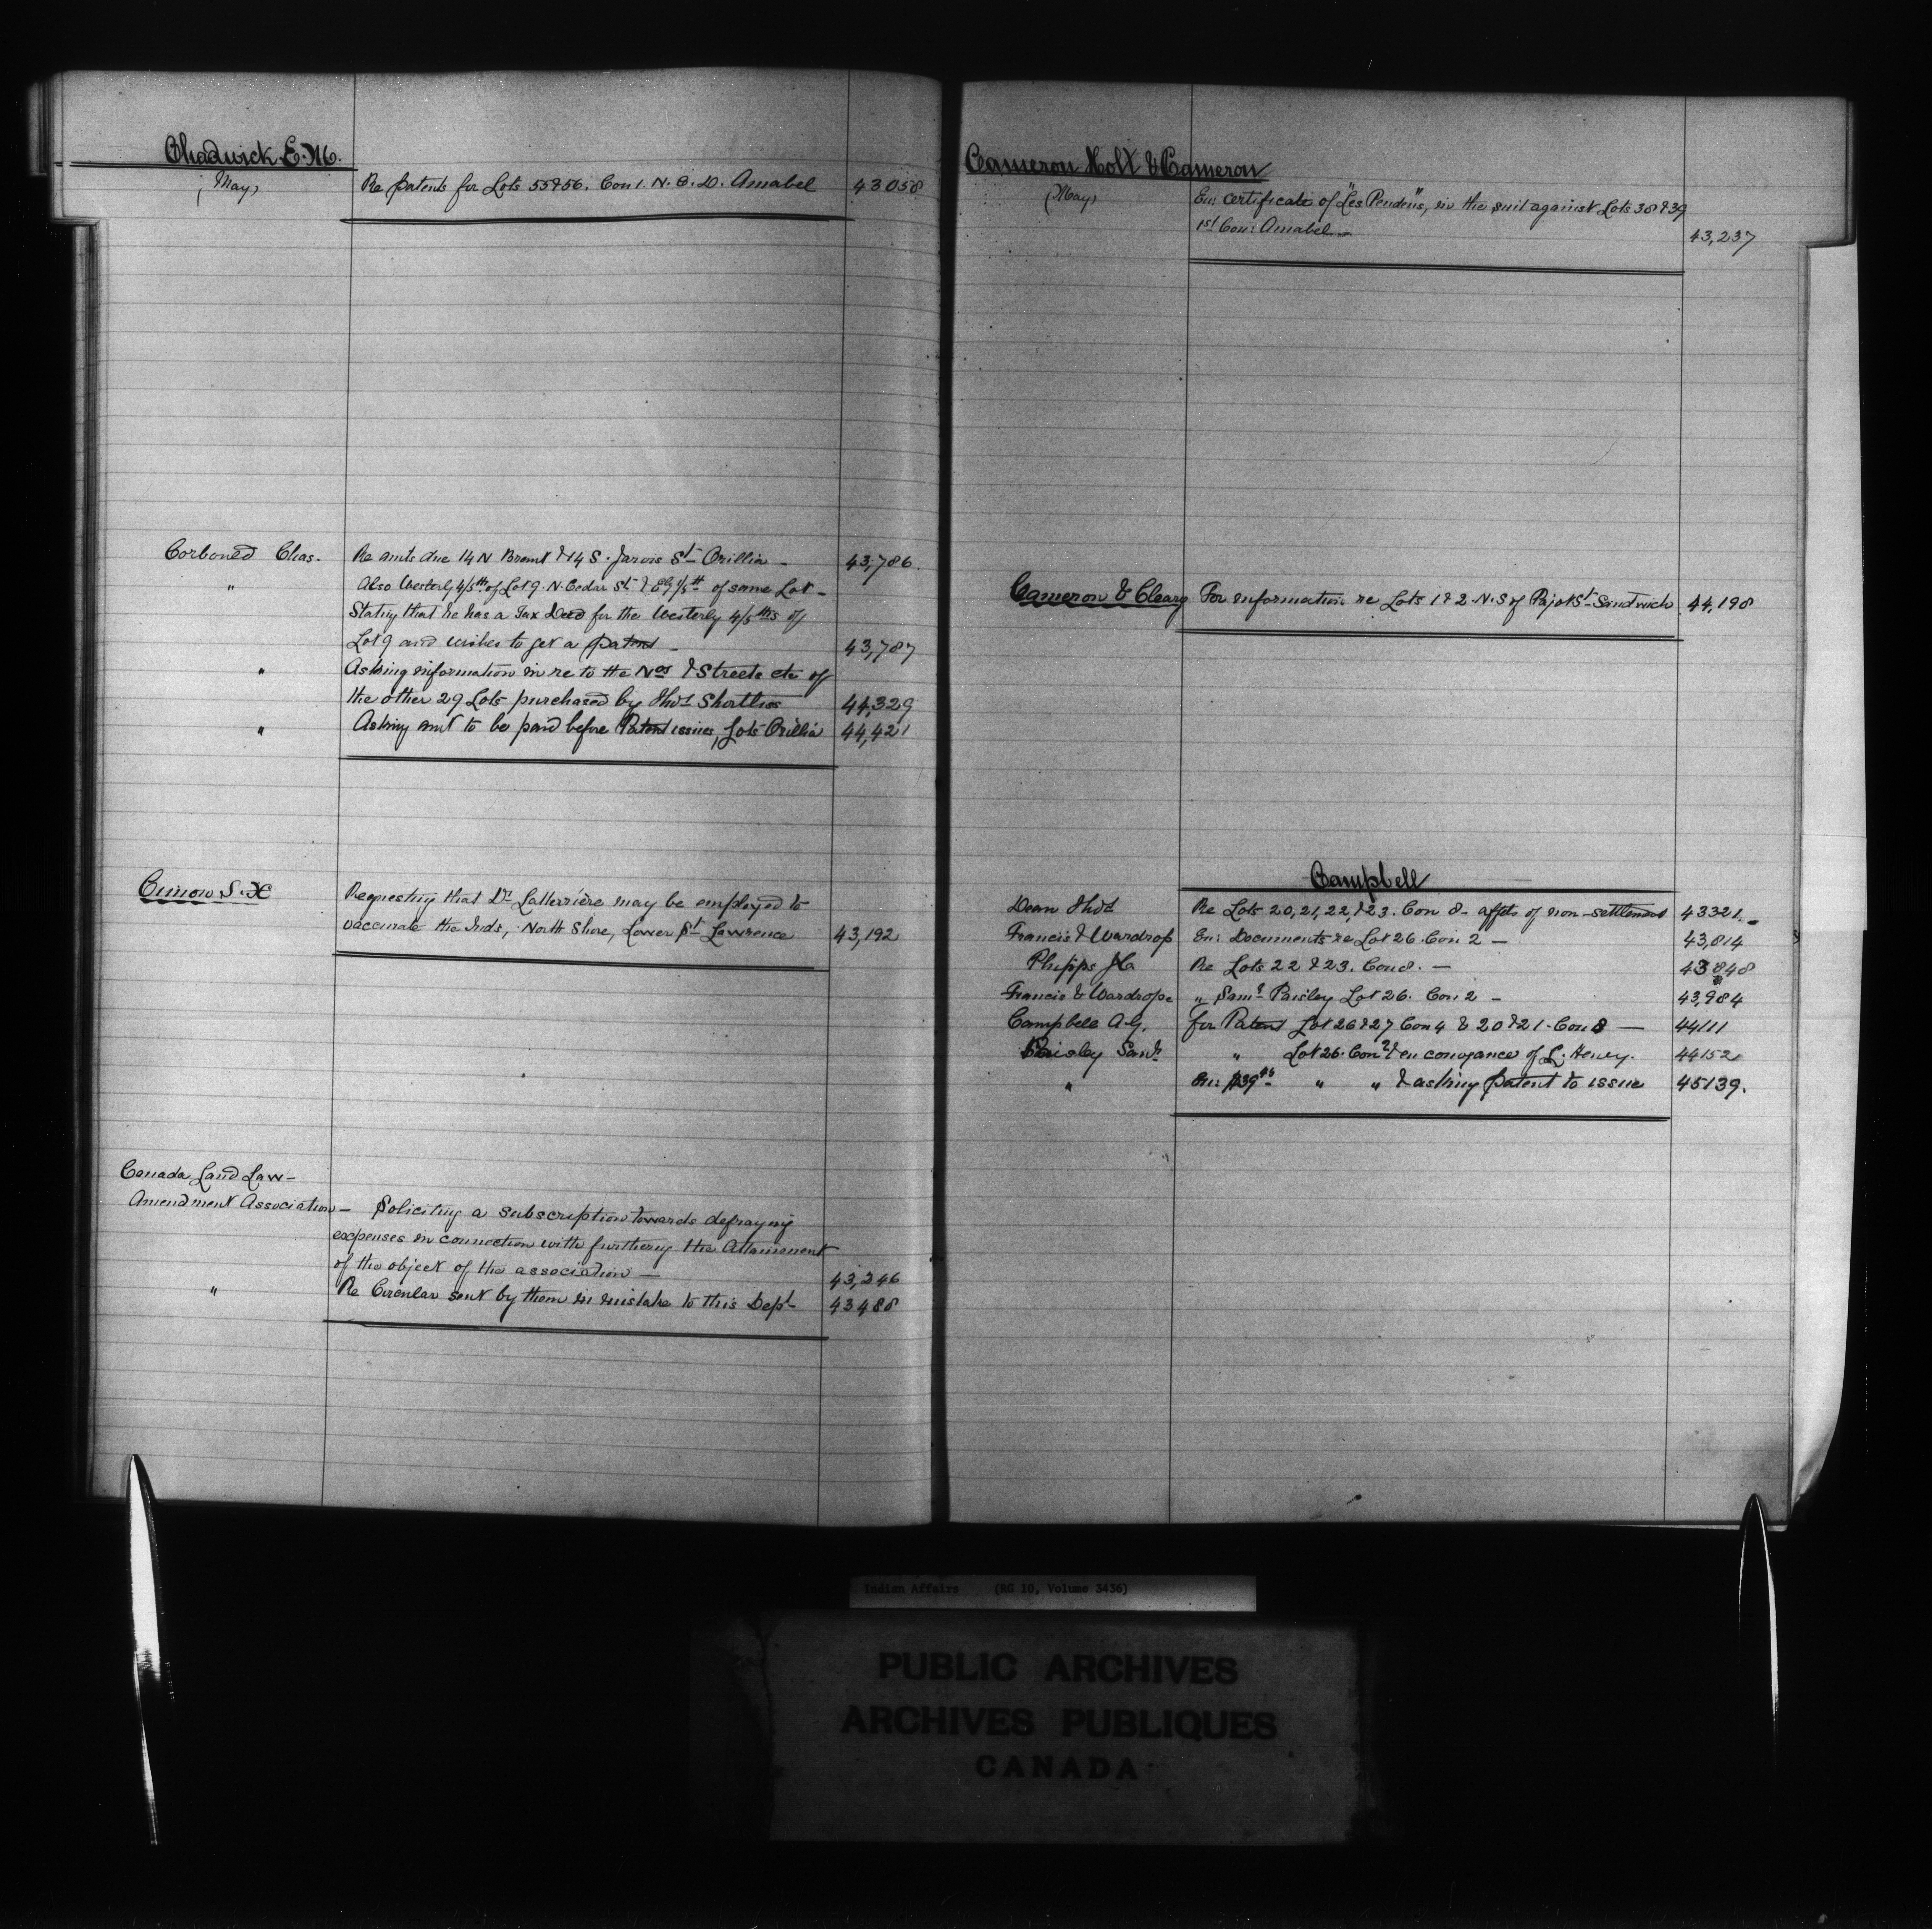 Chadwick E. M.
(May) Re patents for Lots 55 & 56. Con 1. N. B. D. Amabel 43058
Corboned Chas. Re amts due 14 N Brant & 14 S. Jarvis St Orillia - 43,786.
" Also Westerly 4/5th of Lot 9. N. Cedar St & Ely 1/5th of same Lot -
Stating that he has a Tax Deed for the Westerly 4/5ths of
Lot 9 and wishes to get a patent - 43,787
" Asking information in re to the Nos & Streets etc of
the other 29 Lots purchased by Thos Shortliss 44,329
" Asking amt to be paid before Patent issues, Lots Orillia 44,421
S. Requesting that Dr Laterrière may be employed to
vaccinate the Inds, North Shore, Lower St Lawrence 43,192
Canada Land Law-
Amendment Association - Soliciting a subscription towards defraying
expenses in connection with furthering the Attainment
of the object of the association - 43,246
" Re Circular sent by them in mistake to this Dept - 43488
Cameron Holt & Cameron
(May) En: certificate of "Les Pendens", in the suit against Lots 38 & 39
1st Con: Amabel - 43,237
Cameron & Cleary For information re Lots 1 & 2 - N. S of St Sandwich 44,198
Campbell
Dean Thos Re Lots 20, 21, 22, & 23. Con 8 - affts of non-settlement 43321. -
Francis & Wardrop En: Documents re Lot 26. Con 2 - 43,814
Phipps J C Re Lots 22 & 23. Con 8. - 43848
Francis & Wardrope " Saml Paisley Lot 26. Con 2 - 43,984
Campbell A. G. for Patent Lot 26 & 27 Con 4 & 20 & 21 - Con 8 - 44111
Paisley Saml " Lot 26. Con 2 & en conveyance of L. Henry. 44152
" En: $39 " " & asking patent to issue 45139.
Indian Affairs (RG 10, Volume 3436)
PUBLIC ARCHIVES
ARCHIVES PUBLIQUES
CANADA